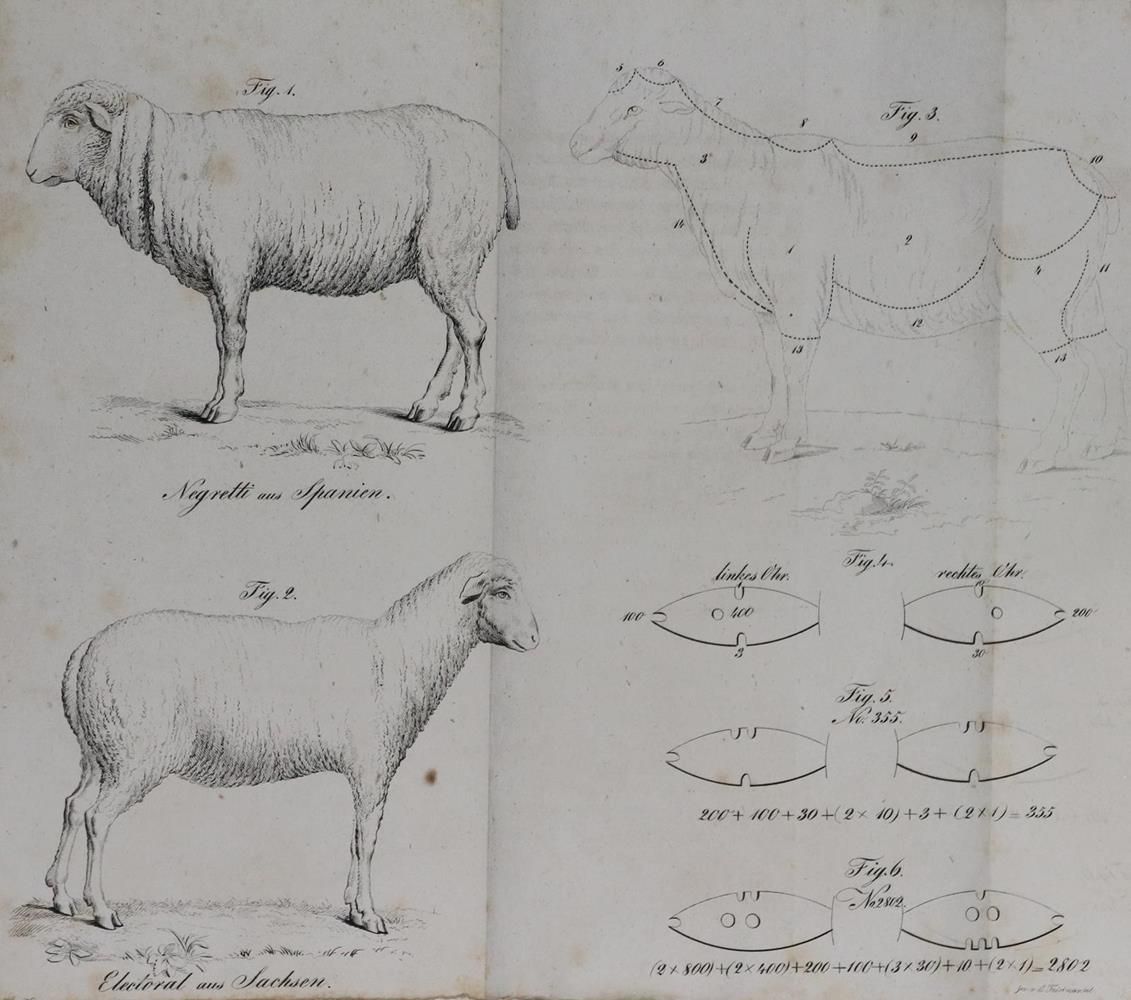 Fig. 1.
Negretti aus Spanien.
Fig. 2.
Electoral aus Sachsen.
Fig. 3.
5 6 7 8 9 10
3 14 1 2 4 11
13 12 13
Fig. 4.
linkes Ohr. rechtes Ohr.
1 10
100 400 200
3 30
Fig. 5.
No. 355.
200 + 100 + 30 + (2 × 10) + 3 + (2 × 1) = 355
Fig. 6.
No 2802.
(2 × 800) + (2 × 400) + 200 + 100 + (3 × 30) + 10 + (2 × 1) = 2802